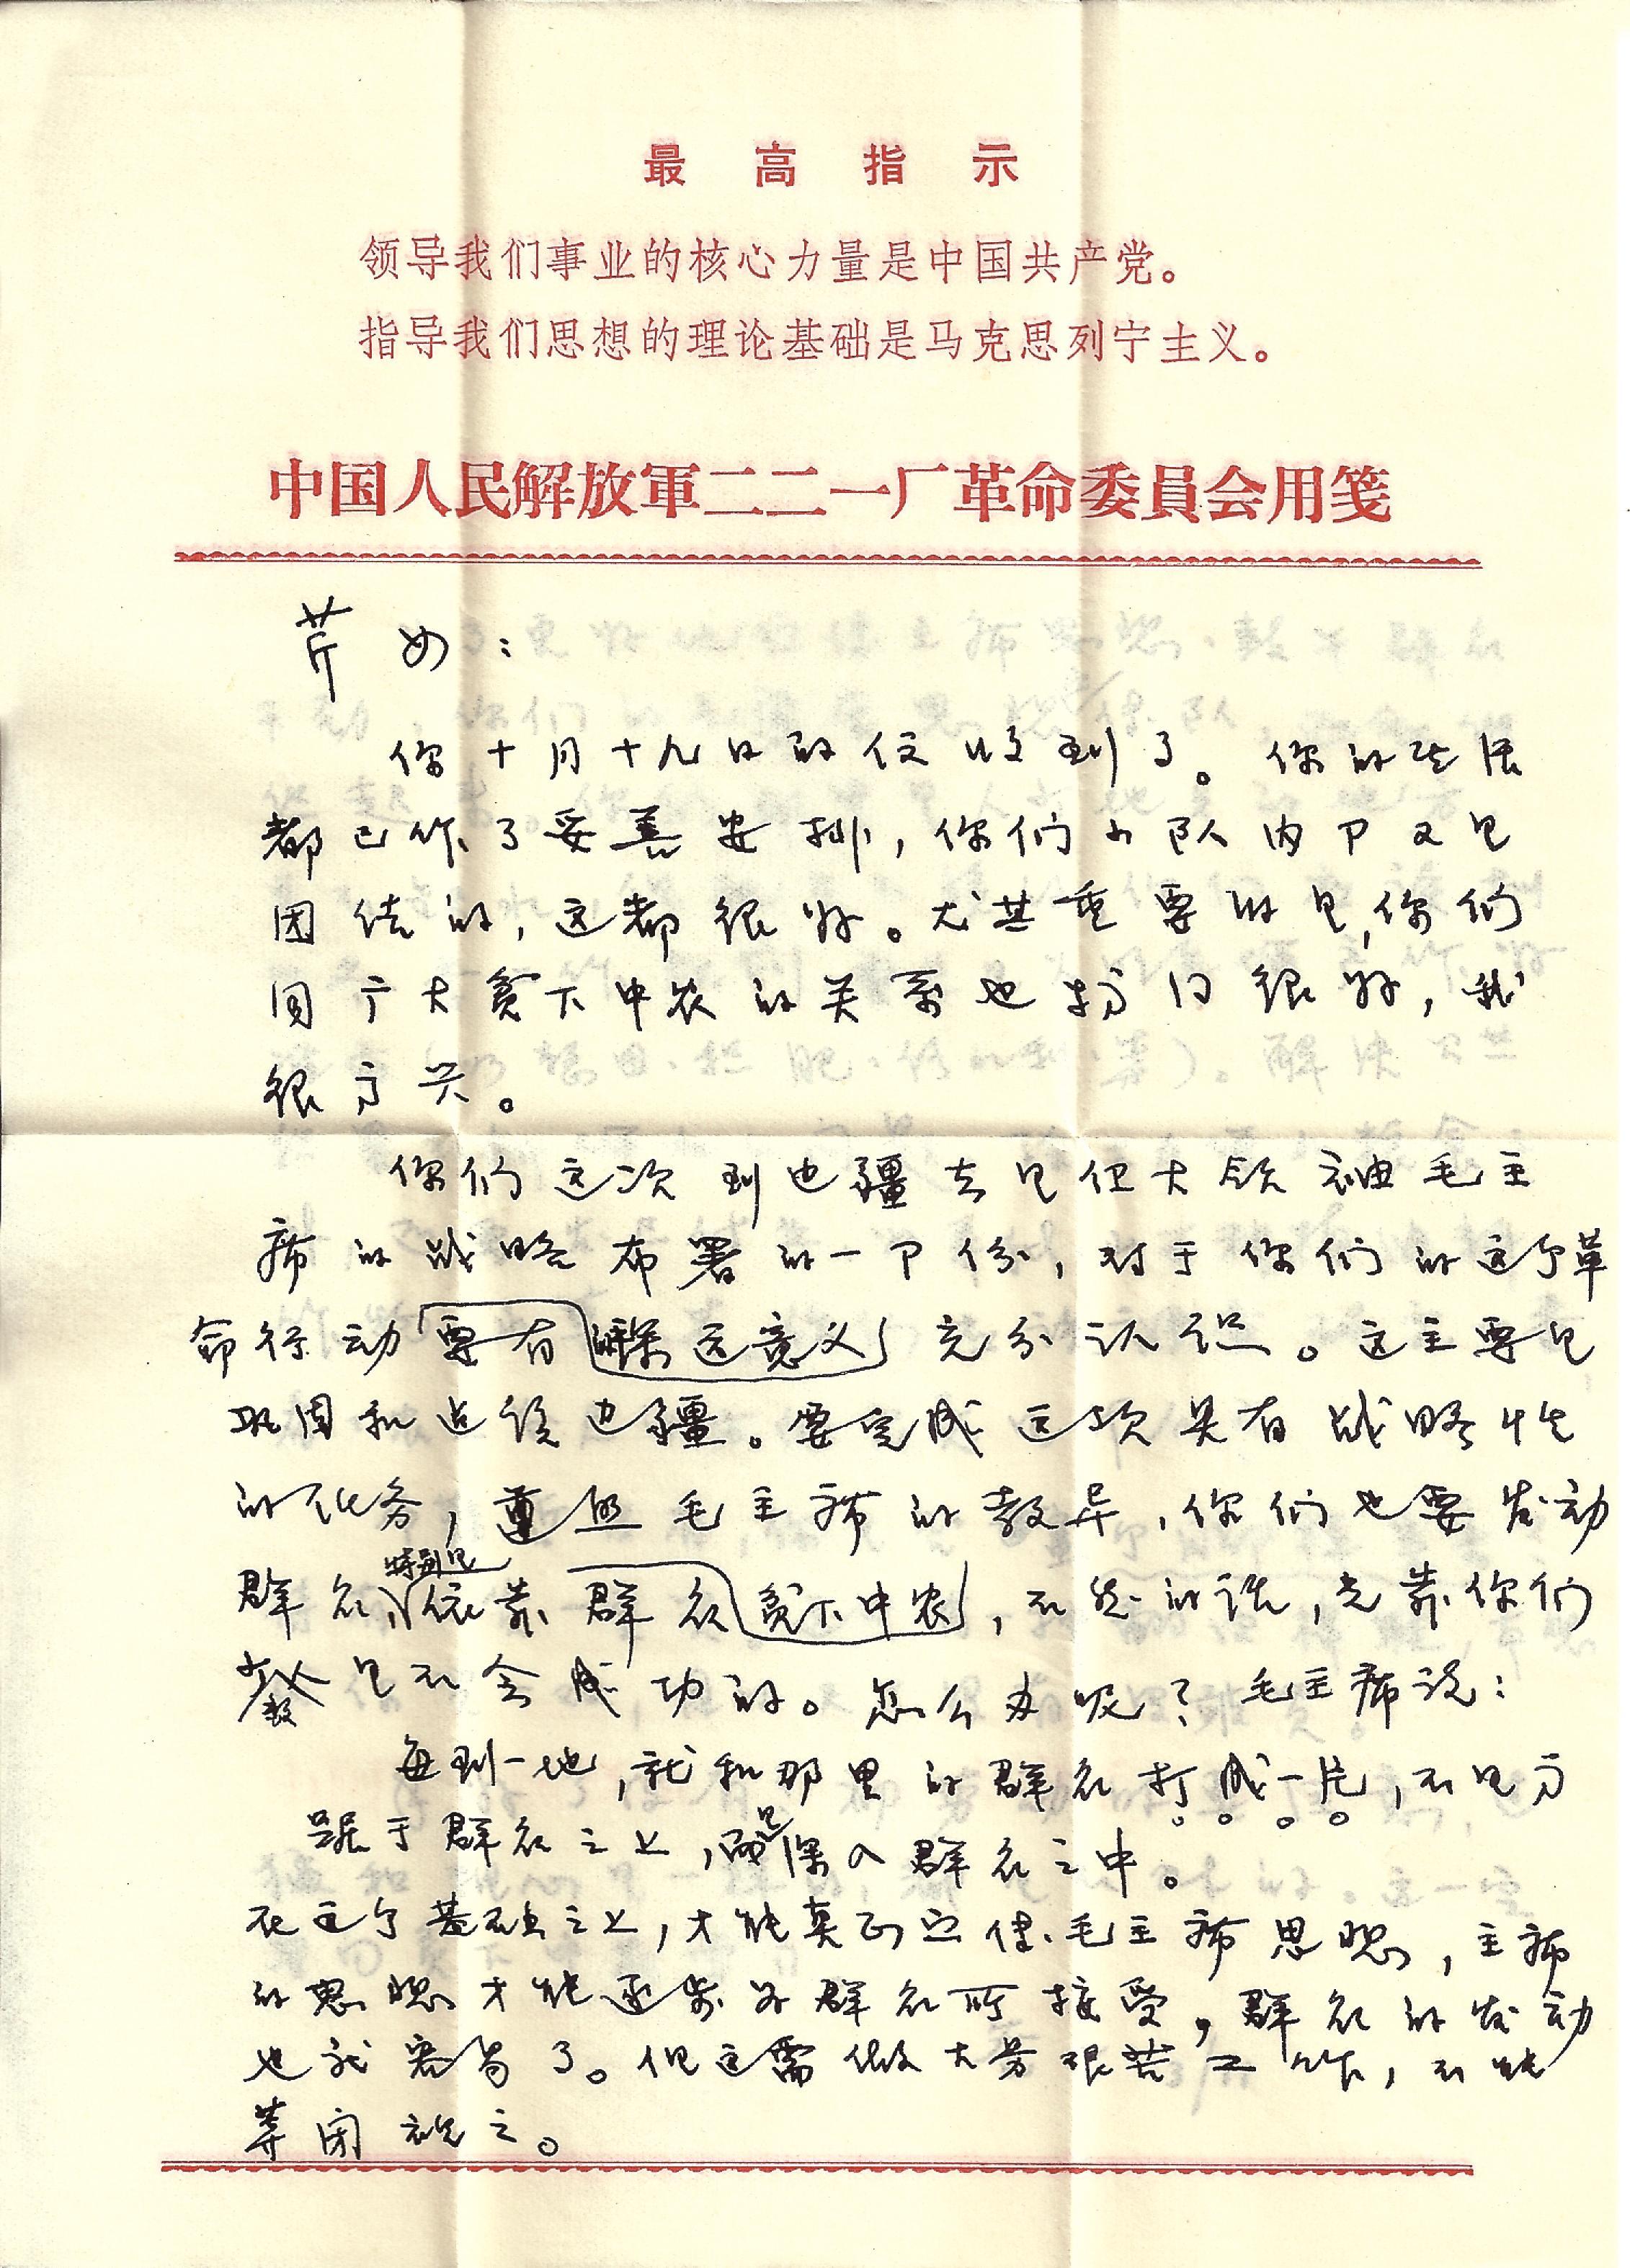 最高指示
领导我们事业的核心力量是中国共产党。
指导我们思想的理论基础是马克思列宁主义。
中国人民解放軍二二一厂革命委員会用笺
芹如：
你十月十九日的信收到了。你的生活
都已作了妥善安排，你们小队内卩又是
团结的，这都很好。尤其重要的是，你们
同广大贫下中农的关系也搞得很好，我
很高兴。
你们这次到边疆去是伟大领袖毛主
席的战略布署的一卩份，对于你们的这个革
命行动要有深远意义充分认识。这主要是
巩固和建设边疆。要完成这项具有战略性
的任务，遵照毛主席的教导，你们也要发动
群众，特别是依靠群众贫下中农，不然的话，光靠你们
少数人是不会成功的。怎么办呢？毛主席说：
每到一地，就和那里的群众打成一片，不是高
踞于群众之上，而是深入群众之中。
在这个基础之上，才能真正宣传毛主席思想，主席
的思想才能逐步为群众所接受，群众的发动
也就容易了。但这需做大量艰苦工作，不能
等闲视之。